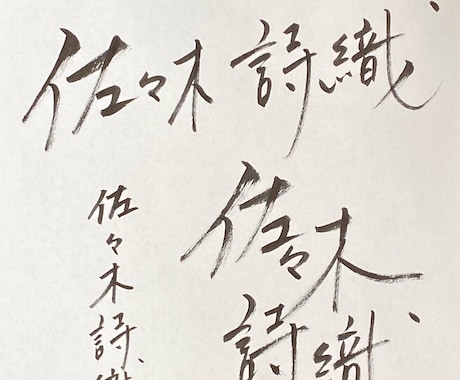 佐々木 詩織
佐々木
詩織
佐々木詩織